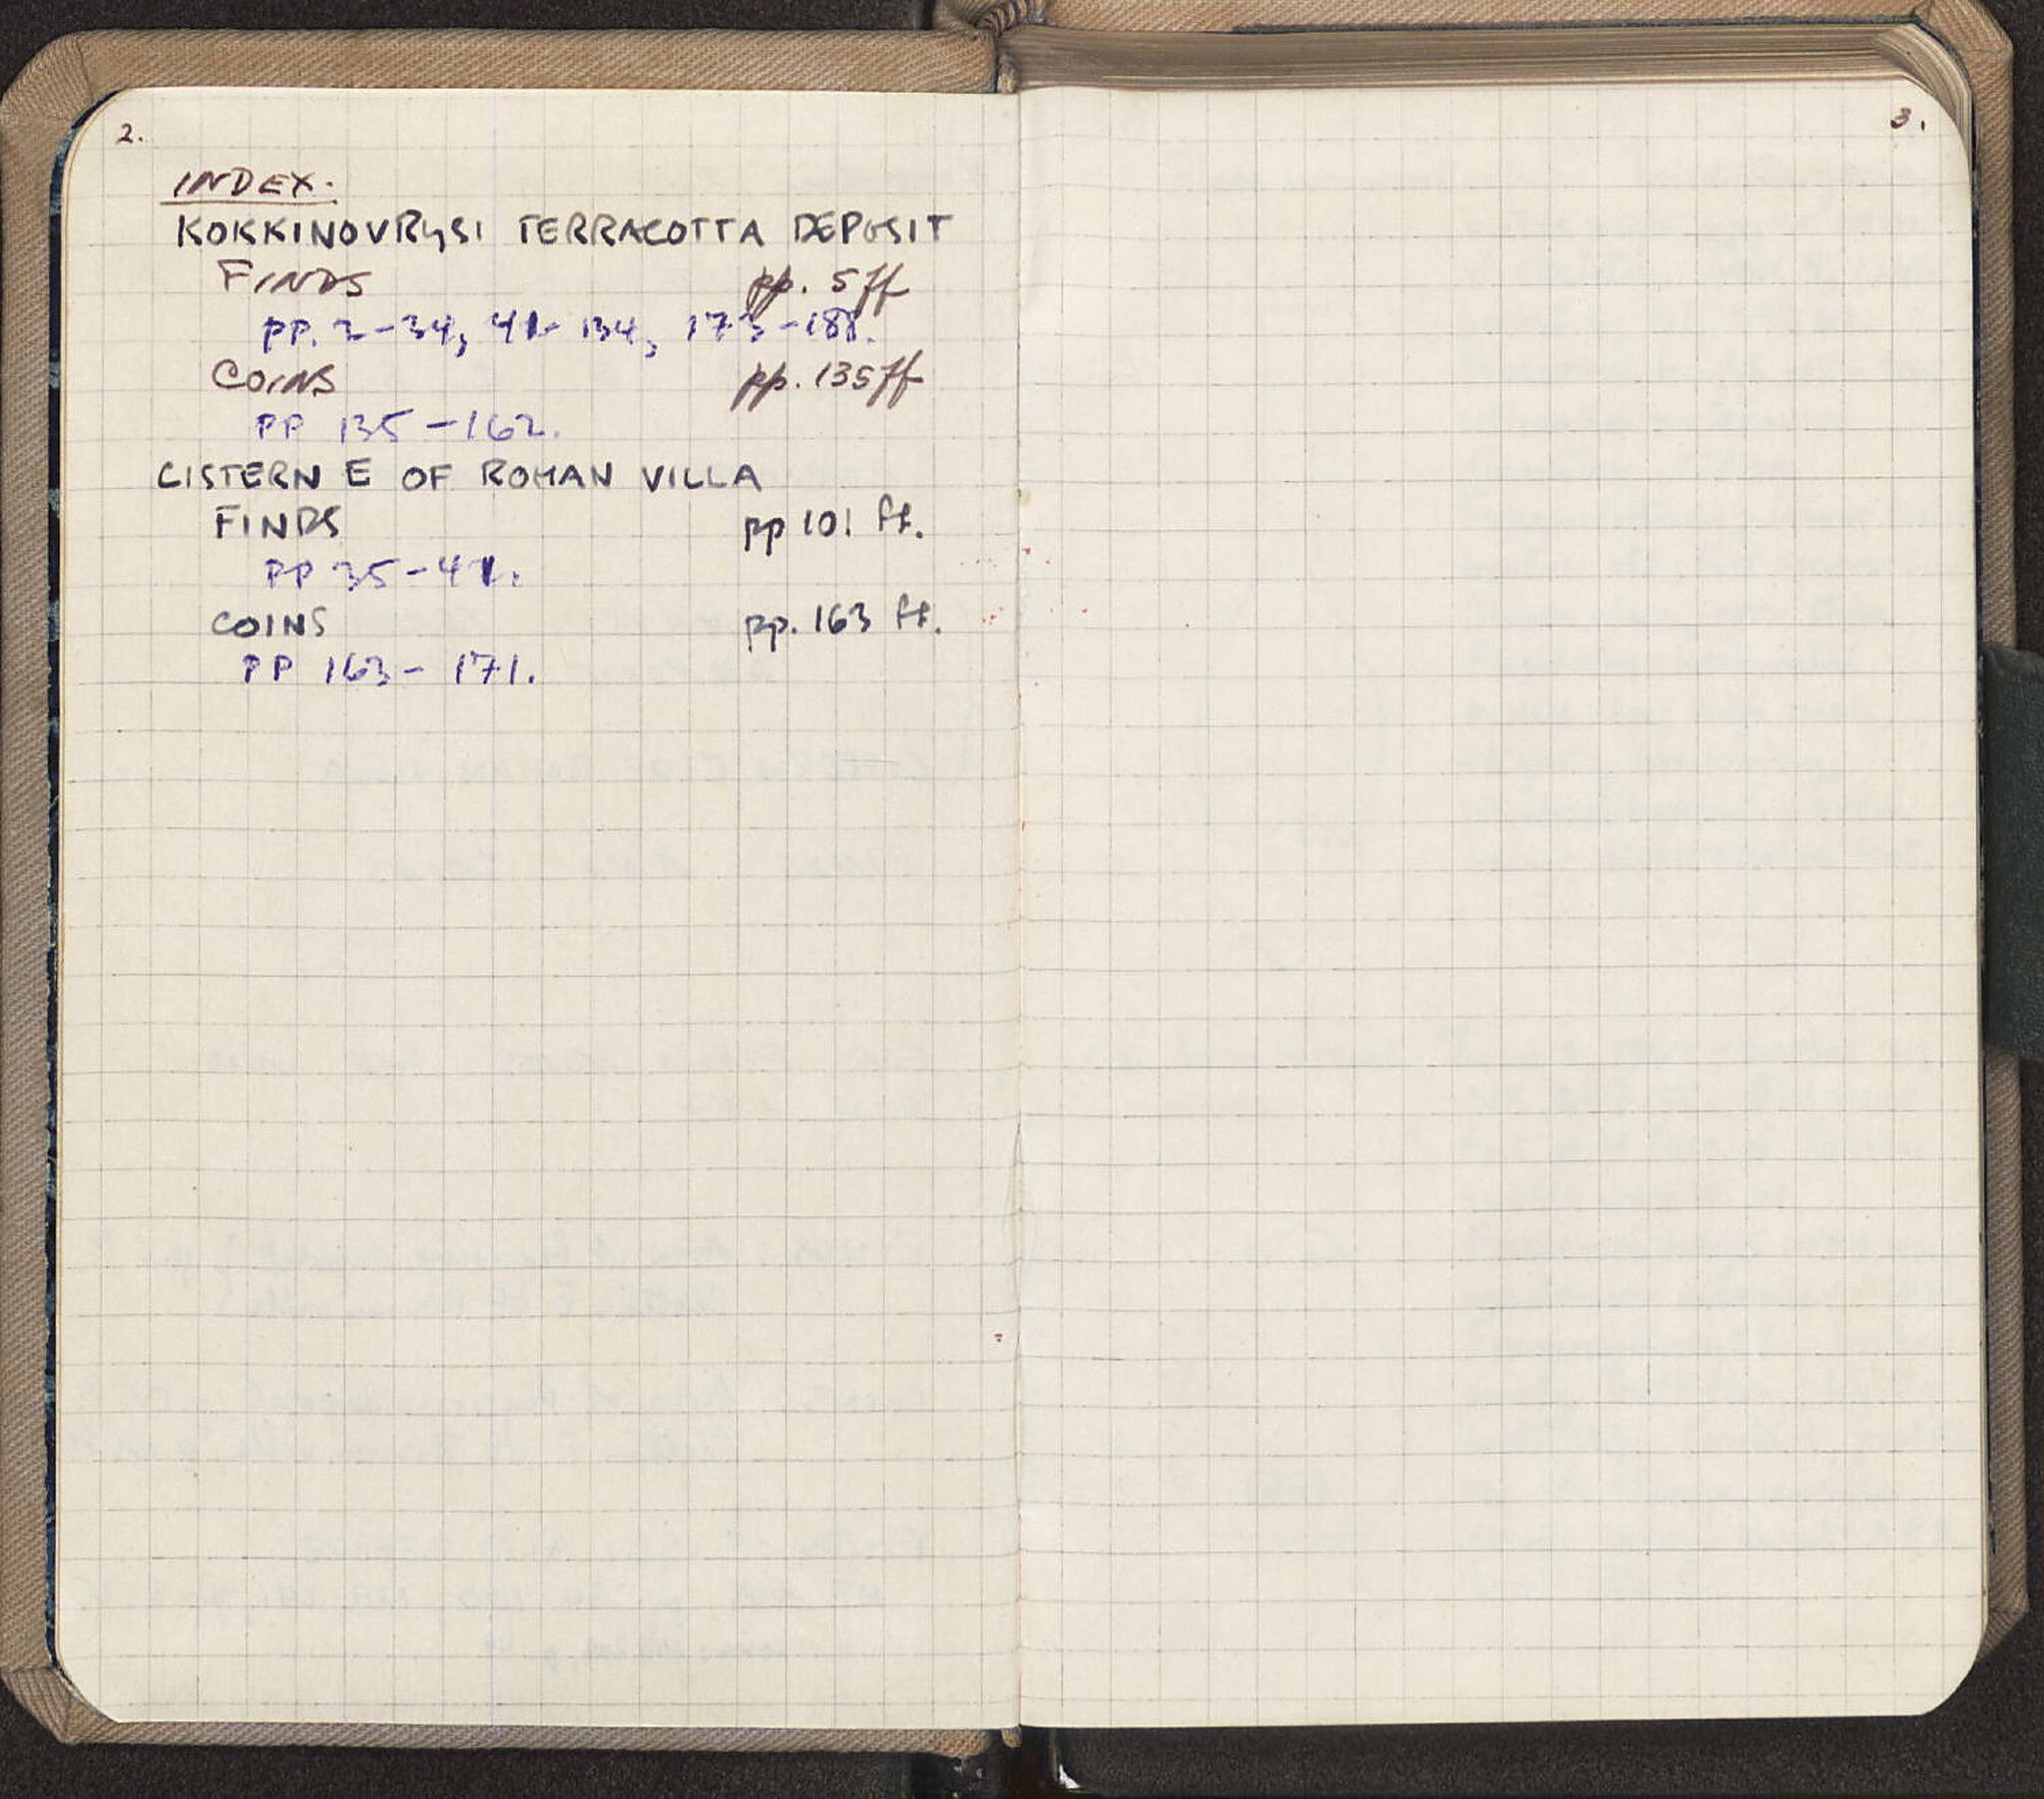 2.
INDEX.
KOKKINOVRYSI TERRACOTTA DEPOSIT
FINDS pp. 5 ff
pp. 2-34, 134, 173-188.
COINS pp. 135 ff
PP 135-162.
CISTERN E OF ROMAN VILLA
FINDS pp 101 ff.
PP
COINS pp. 163 ff.
PP 163-171.
3.